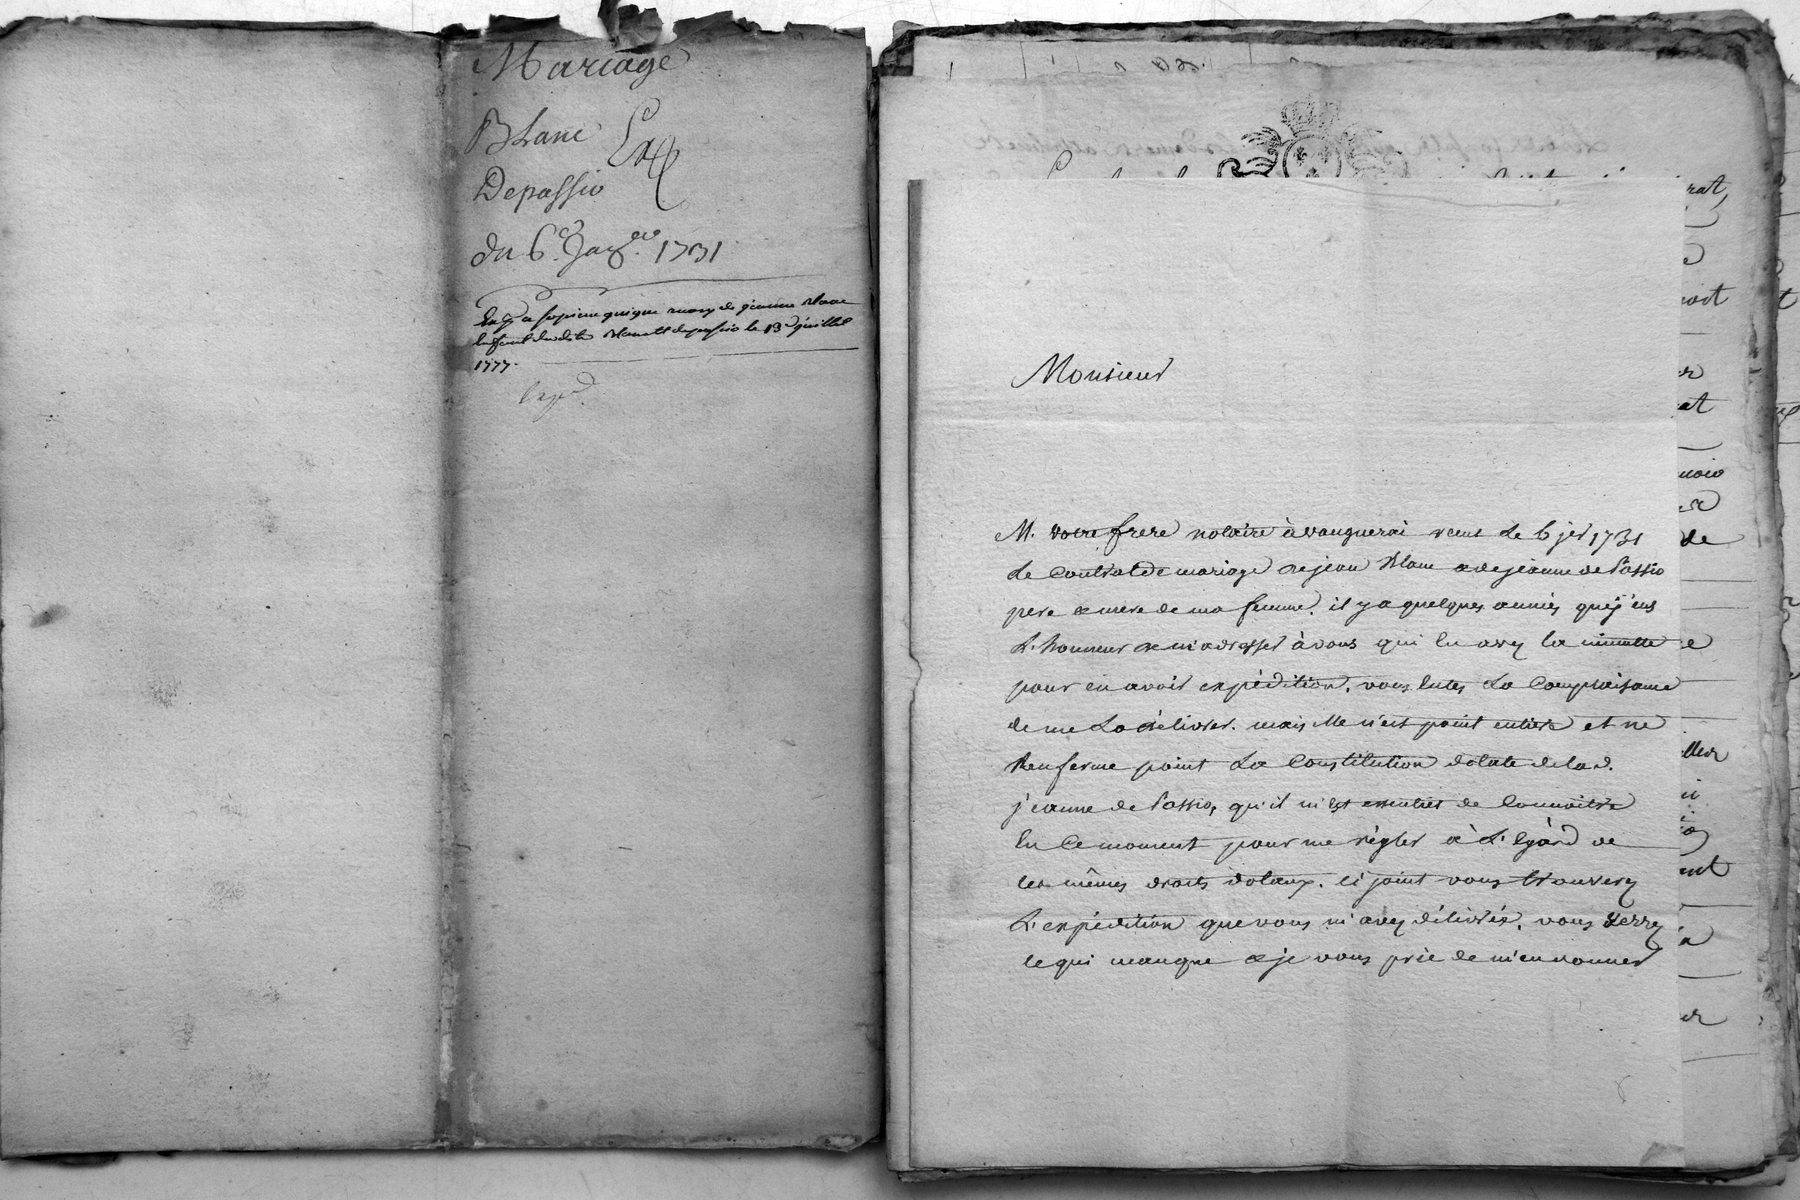 Mariage
Blanc
Depassio
du 6e Janer 1731
Exp a quique mary de jeanne Blanc
enfant desdits Blanc et depassio le 13e juillet
1777.
exp
Monsieur
M. votre frere notaire à vaugnerai recut le 6 jer 1731
le contrat de mariage de jean Blanc & de jeanne de Passio
pere & mere de ma femme. il y a quelques années que j'eus
l'honneur de m'adresser à vous qui en avez la minutte
pour en avoir expédition. vous eutes la complaisance
de me la délivrer. mais elle n'est point entiere et ne
Renferme point la constitution dotale de lad.
jeanne de Passio, qu'il m'est essentiel de connoitre
en ce moment pour me régler à l'égard de
les mêmes droits dotaux. ci joint vous trouverez
l'expédition que vous m'avez délivrés. vous verrez
ce qui manque & je vous prie de m'en donner